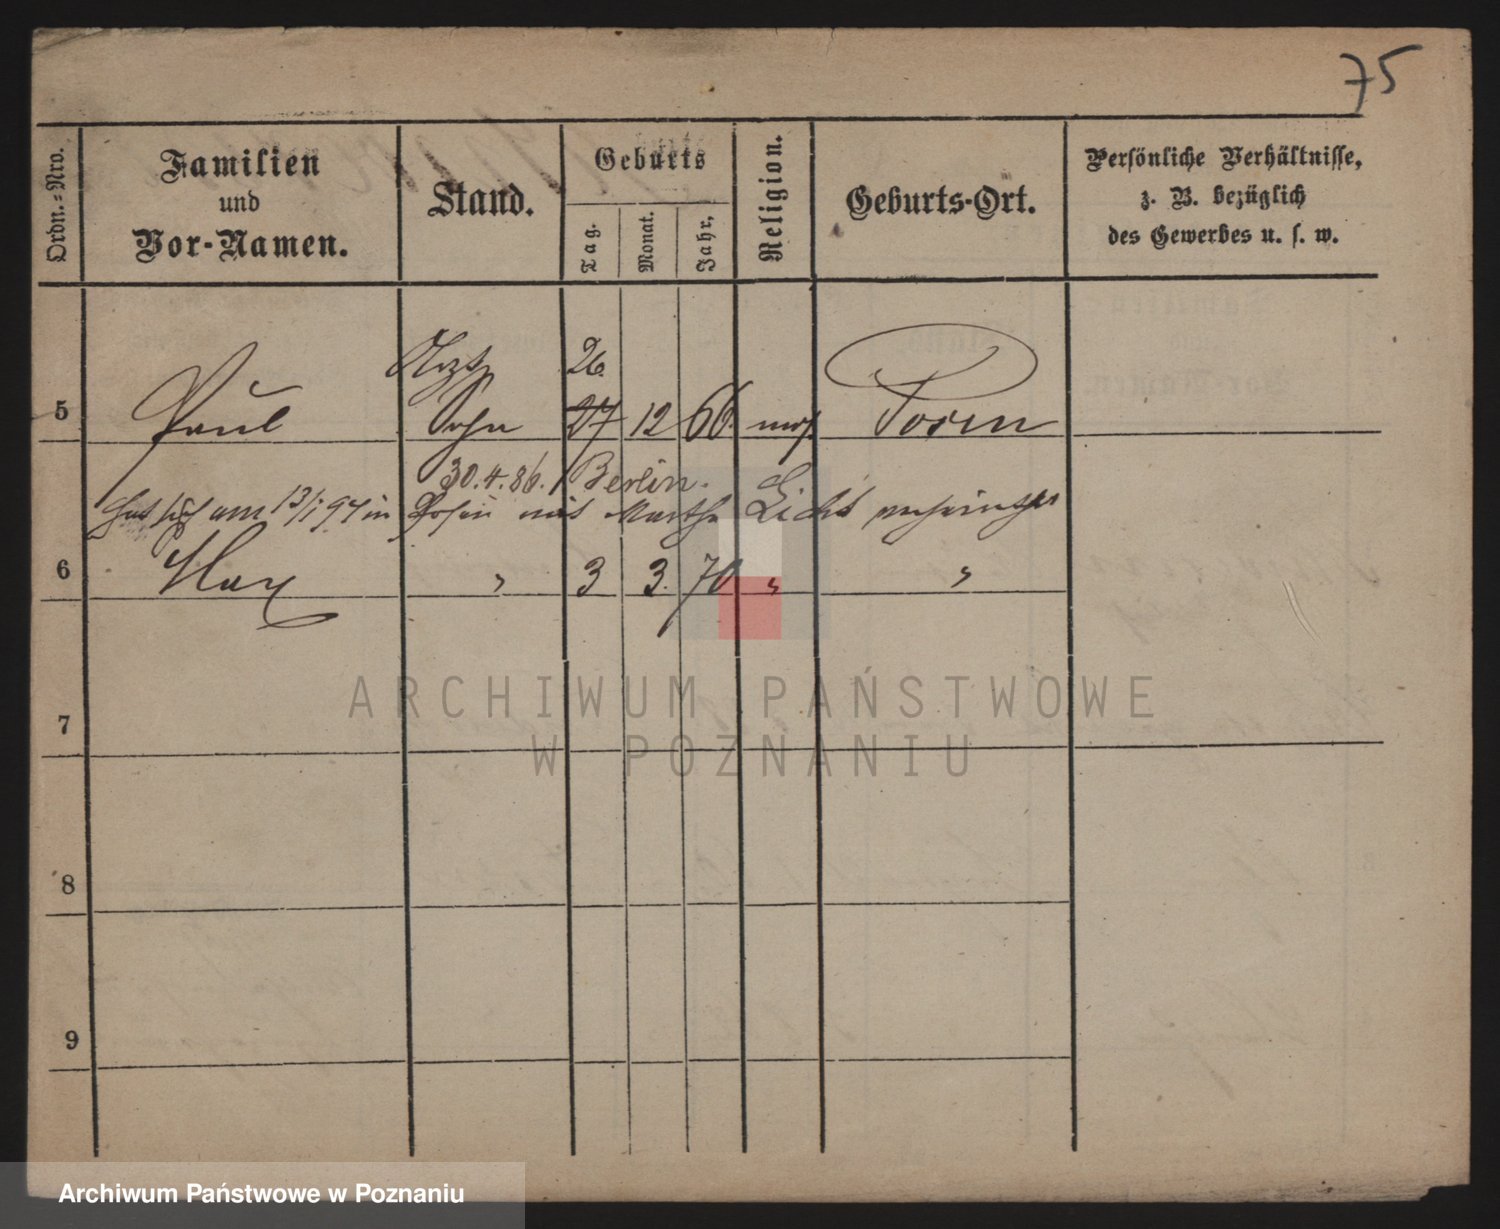 75
Ordn.-Nro.
Familien
und
Vor-Namen.
Stand.
Geburts
Tag.
Monat.
Jahr,
Religion.
Geburts-Ort.
Persönliche Verhältnisse,
z. B. bezüglich
des Gewerbes u. s. w.
Arzt 26
5 Paul Sohn 27 12 66 mos. Posen
30.4.86. Berlin.
Hat sich am 13/1 94 in Posen mit Martha Licht verheirathet
6 Max " 3 3. 70 " "
ARCHIWUM PAŃSTWOWE
W POZNANIU
7
8
9
Archiwum Państwowe w Poznaniu